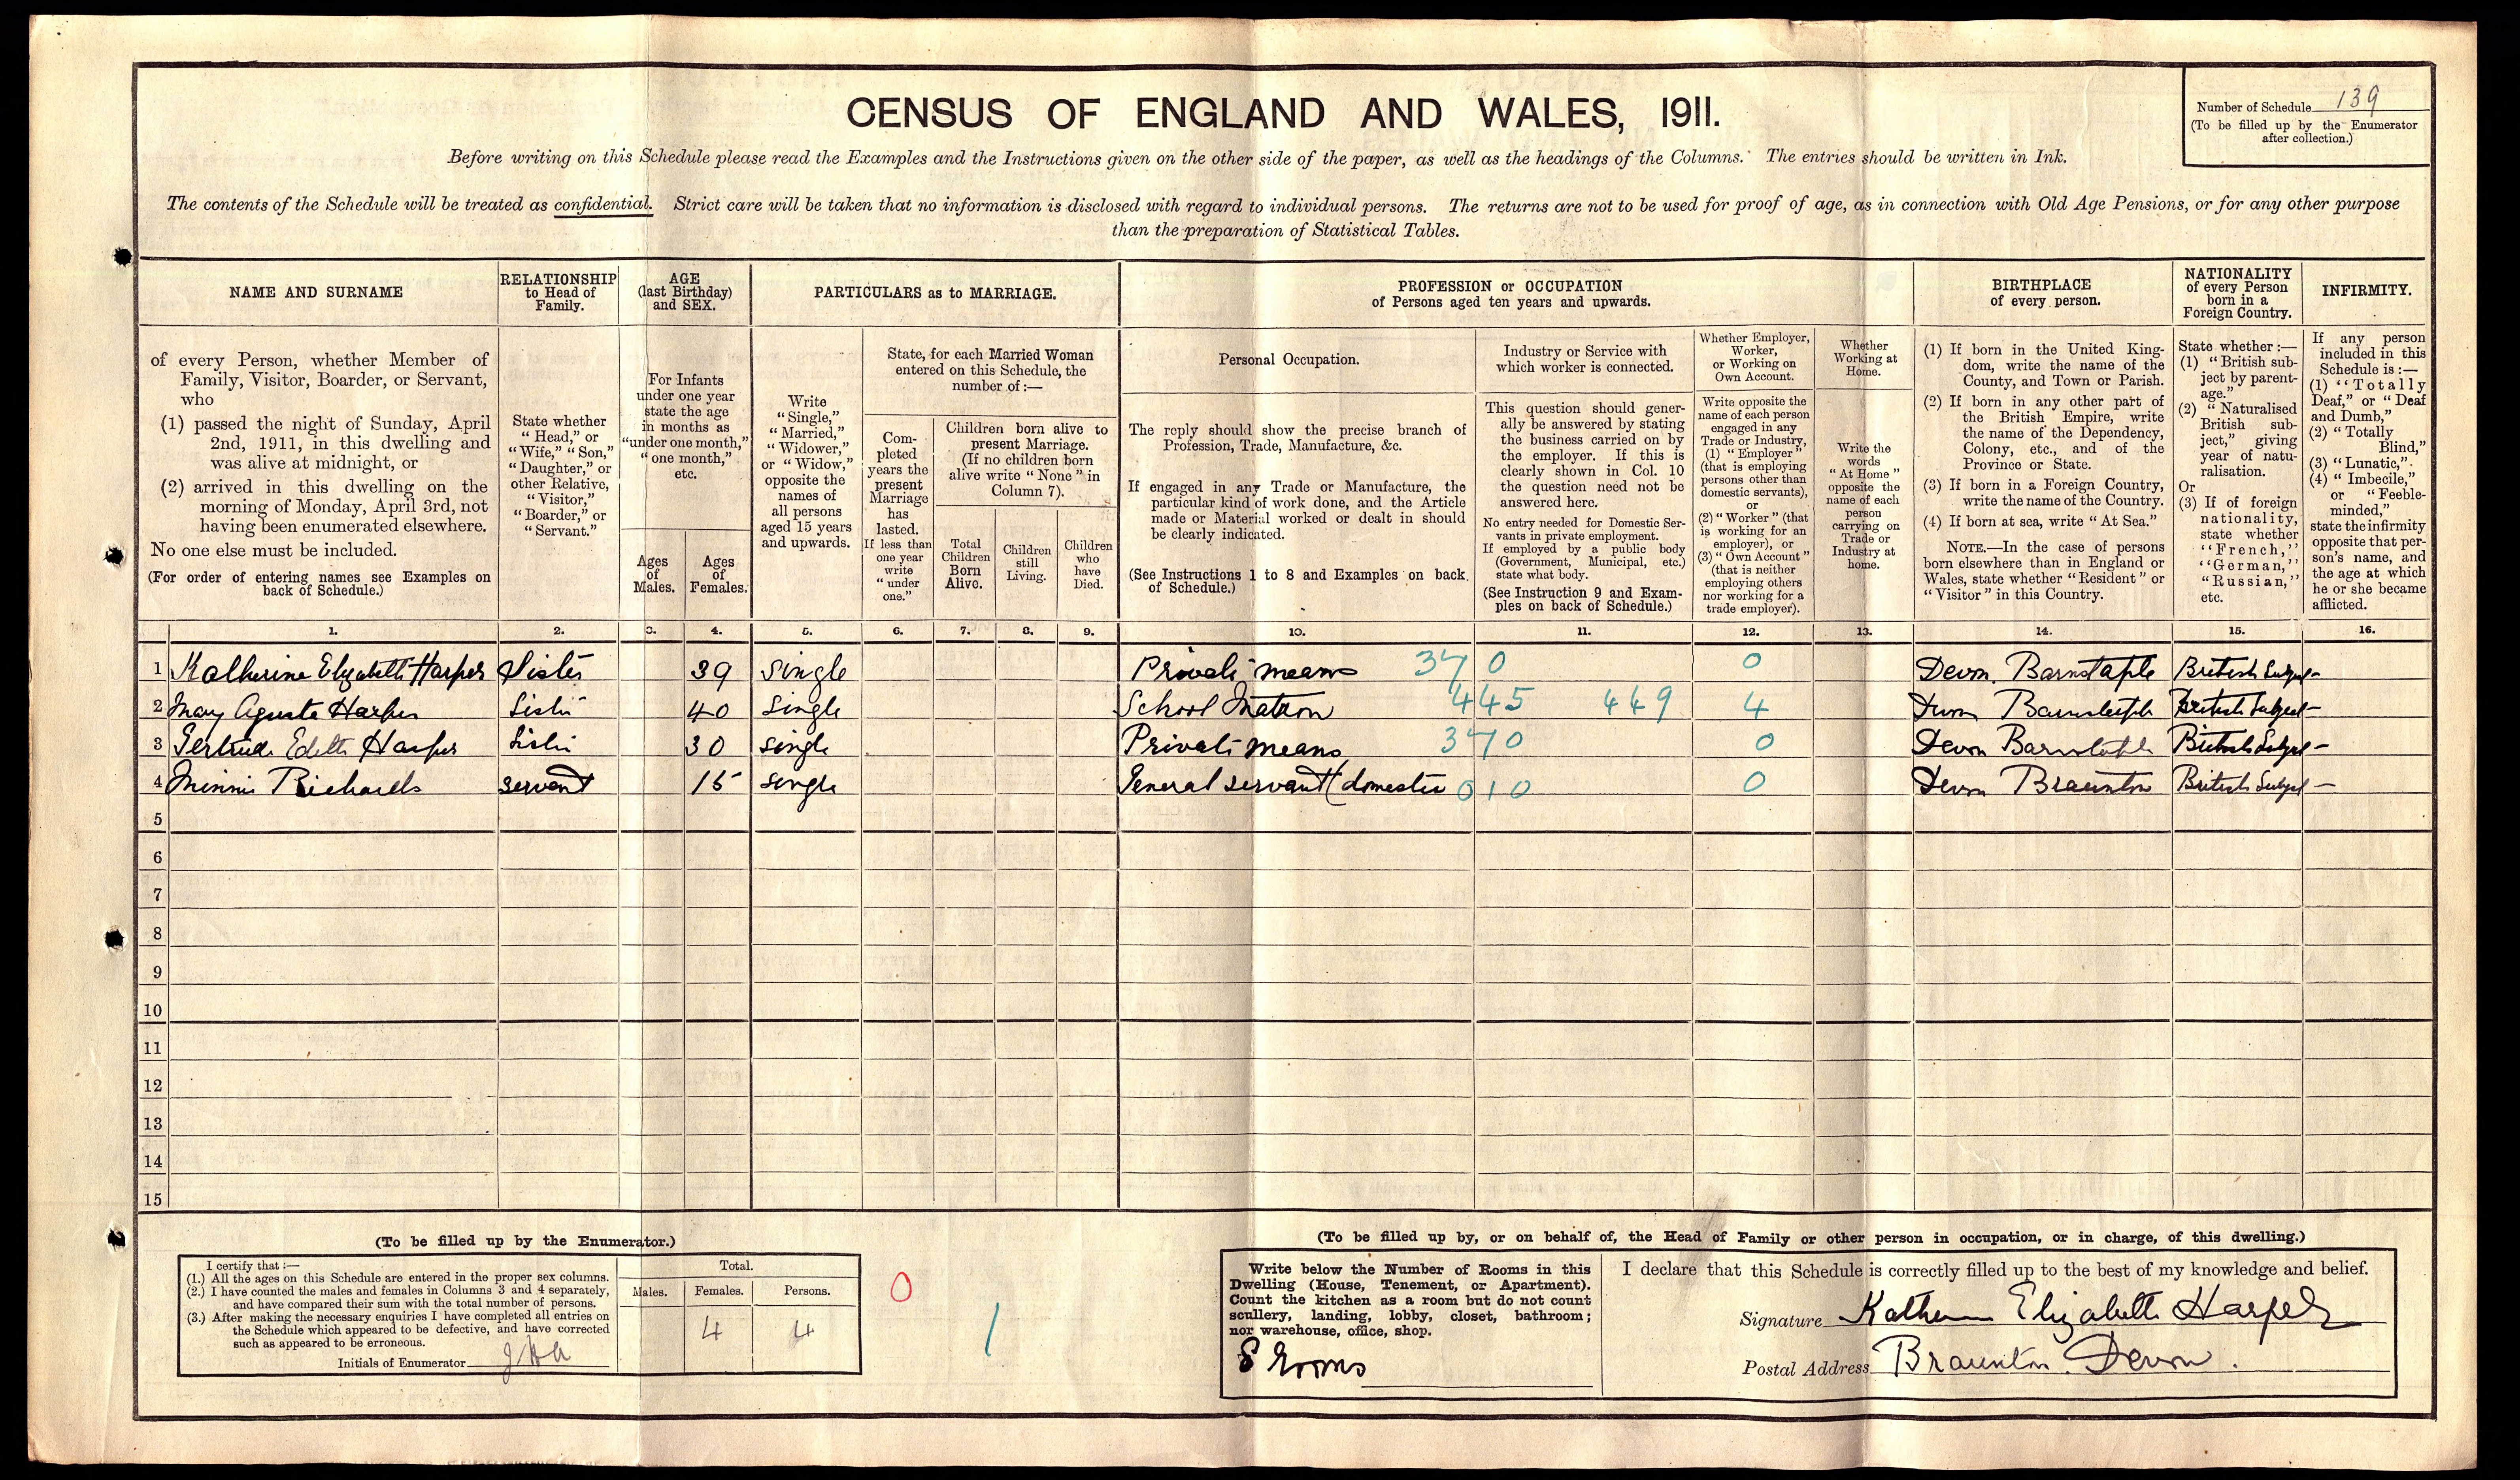 CENSUS OF ENGLAND AND WALES, 1911.
Number of Schedule 139
(To be filled up by the Enumerator
after collection.)
Before writing on this Schedule please read the Examples and the Instructions given on the other side of the paper, as well as the headings of the Columns. The entries should be written in Ink.
The contents of the Schedule will be treated as confidential. Strict care will be taken that no information is disclosed with regard to individual persons. The returns are not to be used for proof of age, as in connection with Old Age Pensions, or for any other purpose
than the preparation of Statistical Tables.
NAME AND SURNAME
of every Person, whether Member of
Family, Visitor, Boarder, or Servant,
who
(1) passed the night of Sunday, April
2nd, 1911, in this dwelling and
was alive at midnight, or
(2) arrived in this dwelling on the
morning of Monday, April 3rd, not
having been enumerated elsewhere.
No one else must be included.
(For order of entering names see Examples on
back of Schedule.)
RELATIONSHIP
to Head of
Family.
State whether
"Head," or
"Wife," "Son,"
"Daughter," or
other Relative,
"Visitor,"
"Boarder," or
"Servant."
AGE
(last Birthday)
and SEX.
For Infants
under one year
state the age
in months as
"under one month,"
"one month,"
etc.
Ages
of
Males.
Ages
of
Females.
PARTICULARS as to MARRIAGE.
Write
"Single,"
"Married,"
"Widower,"
or "Widow,"
opposite the
names of
all persons
aged 15 years
and upwards.
State, for each Married Woman
entered on this Schedule, the
number of :—
Com-
pleted
years the
present
Marriage
has
lasted.
If less than
one year
write
"under
one."
Children born alive to
present Marriage.
(If no children born
alive write "None" in
Column 7).
Total
Children
Born
Alive.
Children
still
Living.
Children
who
have
Died.
PROFESSION or OCCUPATION
of Persons aged ten years and upwards.
Personal Occupation.
The reply should show the precise branch of
Profession, Trade, Manufacture, &c.
If engaged in any Trade or Manufacture, the
particular kind of work done, and the Article
made or Material worked or dealt in should
be clearly indicated.
(See Instructions 1 to 8 and Examples on back
of Schedule.)
Industry or Service with
which worker is connected.
This question should gener-
ally be answered by stating
the business carried on by
the employer. If this is
clearly shown in Col. 10
the question need not be
answered here.
No entry needed for Domestic Ser-
vants in private employment.
If employed by a public body
(Government, Municipal, etc.)
state what body.
(See Instruction 9 and Exam-
ples on back of Schedule.)
Whether Employer,
Worker,
or Working on
Own Account.
Write opposite the
name of each person
engaged in any
Trade or Industry,
(1) "Employer"
(that is employing
persons other than
domestic servants),
or
(2) "Worker" (that
is working for an
employer), or
(3) "Own Account"
(that is neither
employing others
nor working for a
trade employer).
Whether
Working at
Home.
Write the
words
"At Home"
opposite the
name of each
person
carrying on
Trade or
Industry at
home.
BIRTHPLACE
of every person.
(1) If born in the United King-
dom, write the name of the
County, and Town or Parish.
(2) If born in any other part of
the British Empire, write
the name of the Dependency,
Colony, etc., and of the
Province or State.
(3) If born in a Foreign Country,
write the name of the Country.
(4) If born at sea, write "At Sea."
NOTE.—In the case of persons
born elsewhere than in England or
Wales, state whether "Resident" or
"Visitor" in this Country.
NATIONALITY
of every Person
born in a
Foreign Country.
State whether :—
(1) "British sub-
ject by parent-
age."
(2) "Naturalised
British sub-
ject," giving
year of natu-
ralisation.
Or
(3) If of foreign
nationality,
state whether
"French,"
"German,"
"Russian,"
etc.
INFIRMITY.
If any person
included in this
Schedule is :—
(1) "Totally
Deaf," or "Deaf
and Dumb,"
(2) "Totally
Blind,"
(3) "Lunatic,"
(4) "Imbecile,"
or "Feeble-
minded,"
state the infirmity
opposite that per-
son's name, and
the age at which
he or she became
afflicted.
1. 2. 3. 4. 5. 6. 7. 8. 9. 10. 11. 12. 13. 14. 15. 16.
1 Katherine Elizabeth Harper Sister 39 single Private means 370 0 Devon. Barnstaple British Subject –
2 May Agusta Harper Sister 40 Single School Matron 445 449 4 Devon Barnstaple British Subject –
3 Gertrude Edith Harper Sister 30 single Private means 370 0 Devon Barnstaple British Subject –
4 Minnie Richards servant 15 single General servant (domestic 010 0 Devon Braunton British Subject –
5
6
7
8
9
10
11
12
13
14
15
(To be filled up by the Enumerator.)
I certify that :—
(1.) All the ages on this Schedule are entered in the proper sex columns.
(2.) I have counted the males and females in Columns 3 and 4 separately,
and have compared their sum with the total number of persons.
(3.) After making the necessary enquiries I have completed all entries on
the Schedule which appeared to be defective, and have corrected
such as appeared to be erroneous.
Initials of Enumerator
Total.
Males. Females. Persons.
4 4
0
1
(To be filled up by, or on behalf of, the Head of Family or other person in occupation, or in charge, of this dwelling.)
Write below the Number of Rooms in this
Dwelling (House, Tenement, or Apartment).
Count the kitchen as a room but do not count
scullery, landing, lobby, closet, bathroom;
nor warehouse, office, shop.
8 Rooms
I declare that this Schedule is correctly filled up to the best of my knowledge and belief.
Signature Katherine Elizabeth Harper
Postal Address Braunton. Devon.